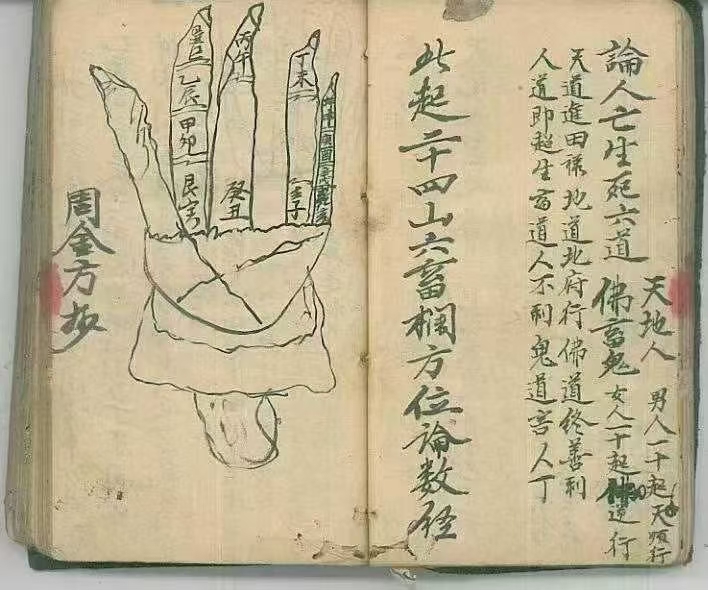 論人亡生死六道
天地人
佛畜鬼
男人一十起天順行
女人一十起佛逆行
天道進田祿地道北府行佛道終善利
人道即超生畜道人不利鬼道害人丁
此起二十四山六畜欄方位論數經
丁未
壬子
丙午
癸丑
巽巳
乙辰
甲卯
艮寅
周金方抄